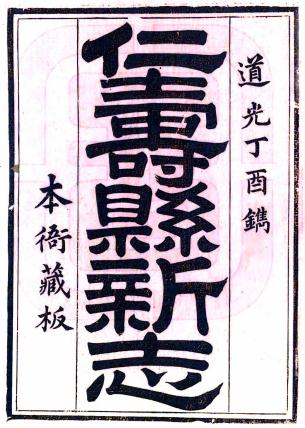 道光丁酉鐫
仁壽縣新志
本衙藏板